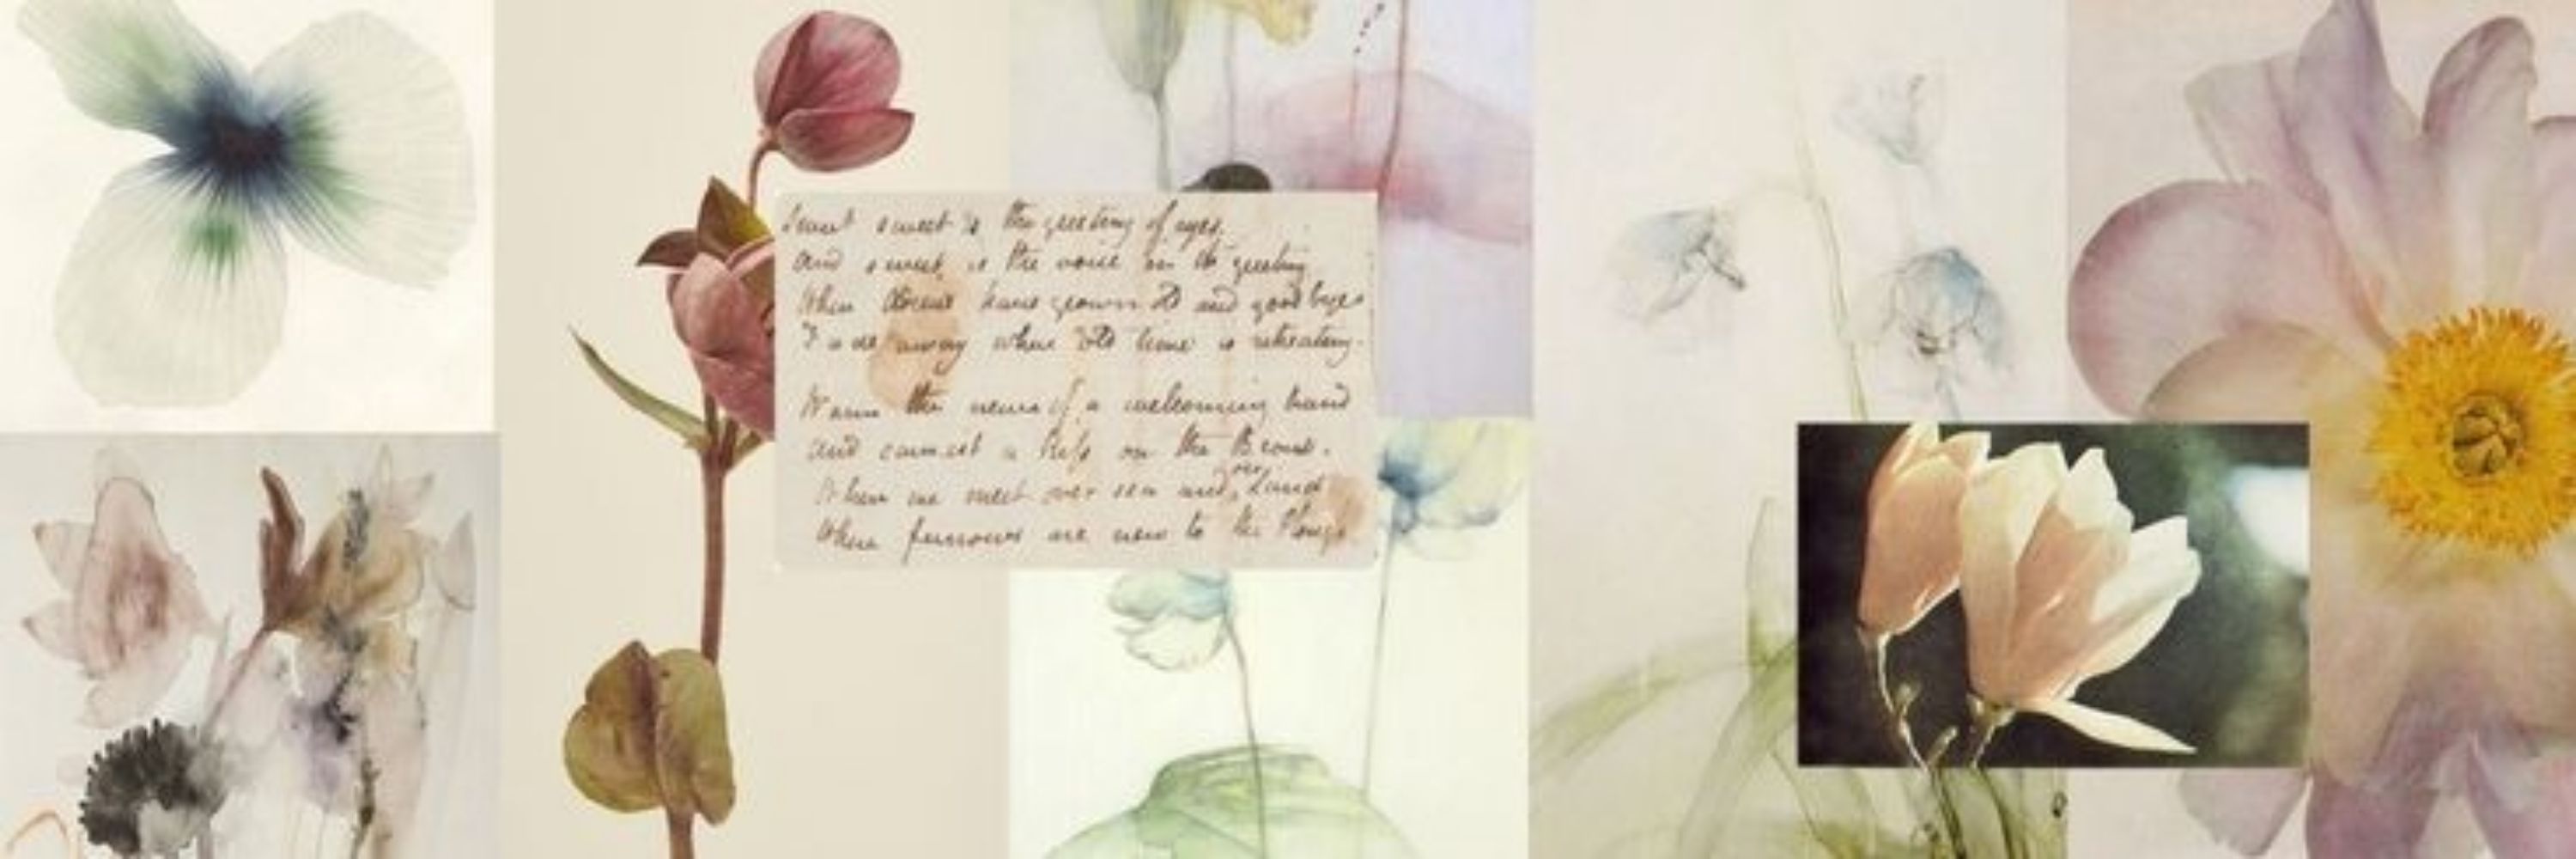 Sweet sweet is the greeting of eyes,
and sweet is the voice in its greeting
When Adieus have grown old and goodbyes
Fade away where old time is retreating.
Warm the nerve of a welcoming hand
and earnest a kiss on the Brow,
When we meet over sea and o'er Land
Where furrows are new to the Plough